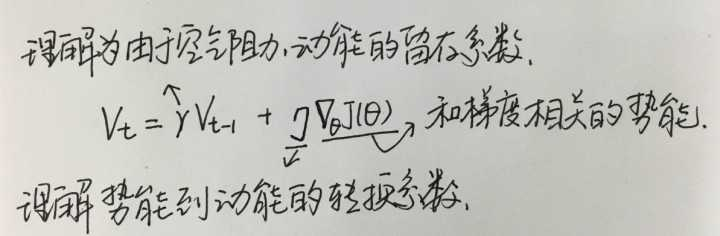 理解为由于空气阻力,动能的留存系数.
V_t = γ V_{t-1} + η ∇_θ J(θ) → 和梯度相关的势能.
理解势能到动能的转换系数.